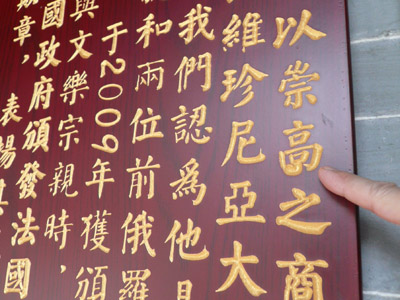 以崇高之商
維珍尼亞大
我們認為他
和兩位前俄羅
于2009年獲頒
與文樂宗親時，
國政府頒發法國
章，表揚